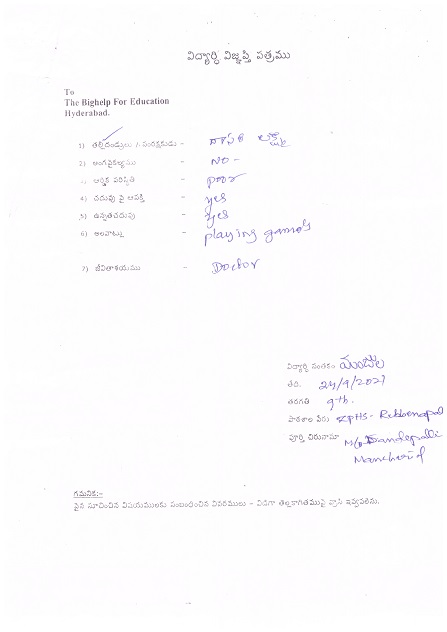 విద్యార్థి విజ్ఞప్తి పత్రము
To
The Bighelp For Education
Hyderabad.
1) తల్లిదండ్రులు / సంరక్షకుడు -
2) అంగవైకల్యము - NO -
3) ఆర్థిక పరిస్థితి - poor
4) చదువు పై ఆసక్తి - yes
5) ఉన్నతచదువు - yes
6) అలవాట్లు - playing games
7) జీవితాశయము - Doctor
విద్యార్థి సంతకం మంజుల
తేది. 24/9/2021
తరగతి 9th.
పాఠశాల పేరు ZPHS-
పూర్తి చిరునామా
గమనిక:-
పైన సూచించిన విషయములకు సంబంధించిన వివరములు - విడిగా తెల్లకాగితముపై వ్రాసి ఇవ్వవలెను.